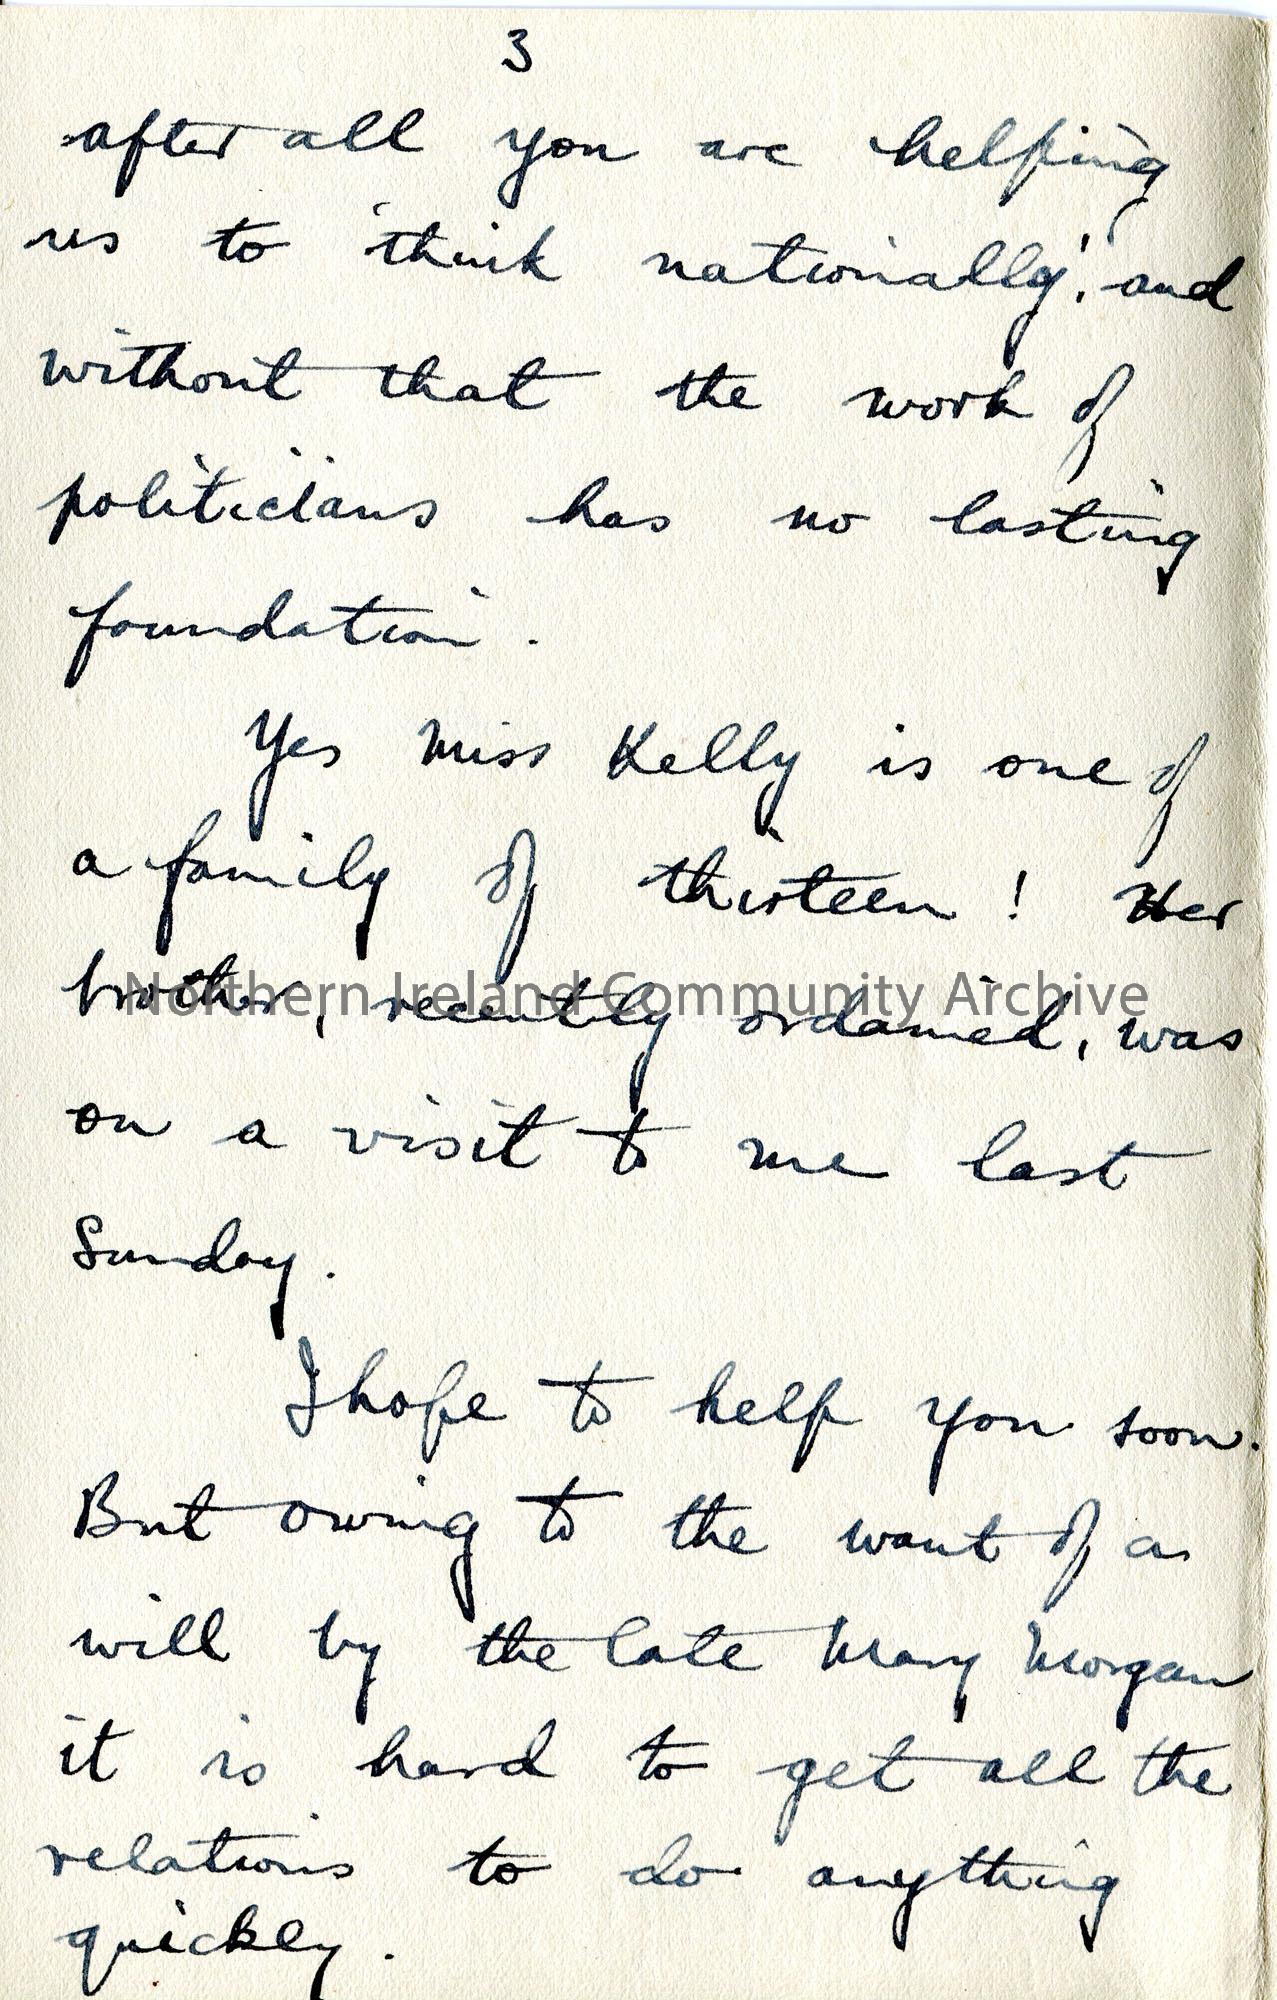 3
after all you are helping
us to 'think nationally', and
without that the work of
politicians has no lasting
foundation.
Yes Miss Kelly is one of
a family of thirteen! Her
brother, recently ordained, was
Northern Ireland Community Archive
on a visit to me last
Sunday.
I hope to help you soon.
But owing to the want of a
will by the late Mary Morgan
it is hard to get all the
relations to do anything
quickly.